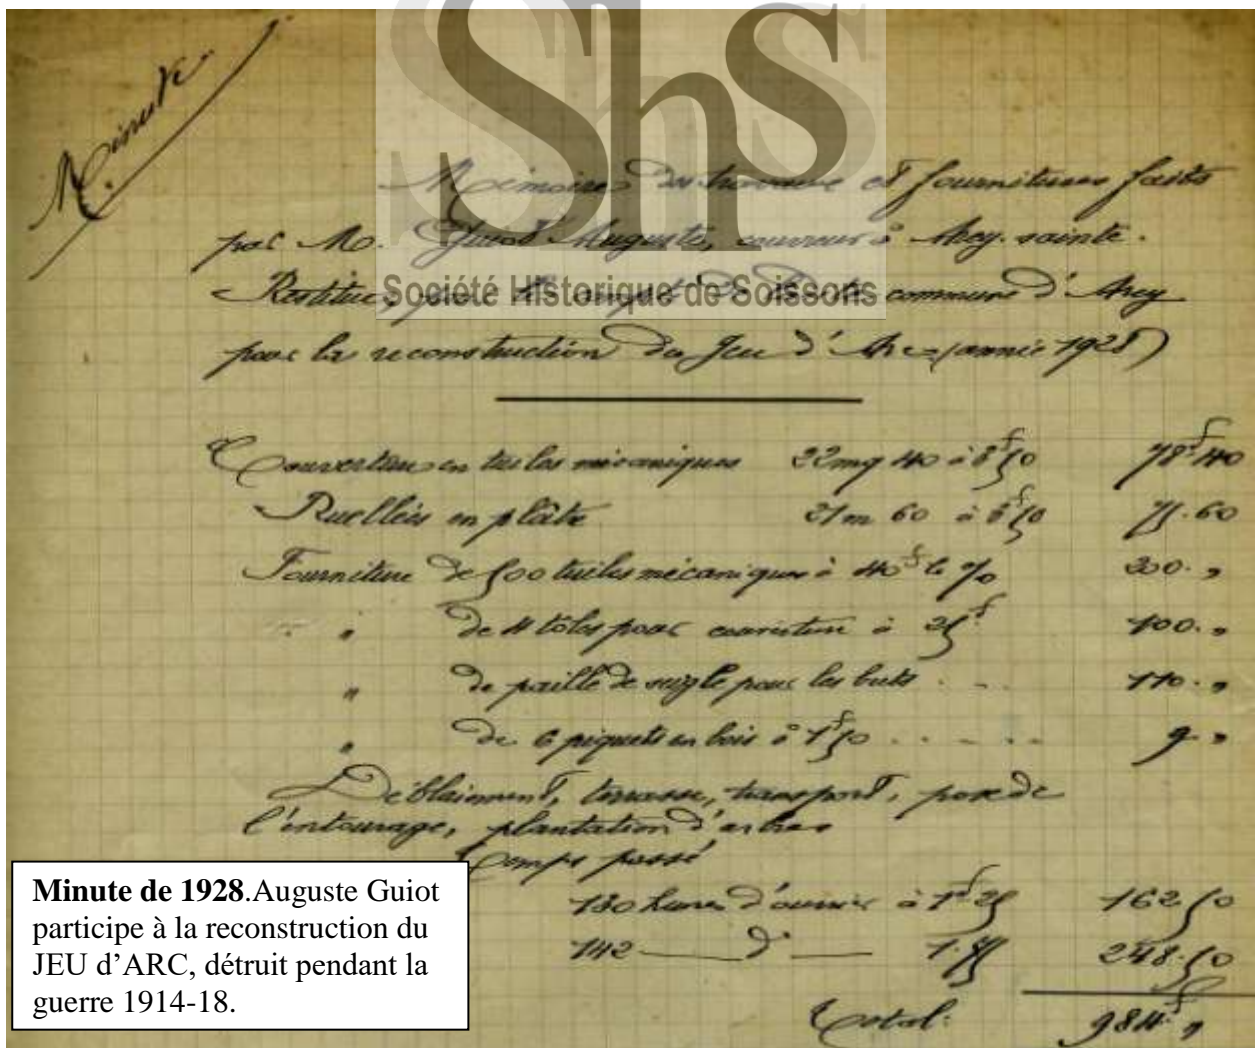 Minute
Shs
Société Historique de Soissons
Mémoire des travaux et fournitures faits
par M. Guiot Auguste, couvreur à Arcy-sainte-
Restitue, pour le compte de la commune d'Arcy
pour la reconstruction du Jeu d'Arc (année 1928)
Couverture en tuiles mécaniques 22mq 40 à 3f50 78f40
Ruellées en plâtre 21m 60 à 3f50 75.60
Fourniture de 500 tuiles mécaniques à 40f le % 200. "
" de 4 tôles pour couverture à 25f 100. "
" de paille de seigle pour les buts . . . 110. "
" de 6 piquets en bois à 1f50 . . . . . 9 "
Déblaiement, terrasse, transport, pose de
l'entourage, plantation d'arbres
Temps passé
130 heures d'ouvrier à 1f25 162.50
142 — d° — 1.75 248.50
Total: 984f "
Minute de 1928.Auguste Guiot
participe à la reconstruction du
JEU d'ARC, détruit pendant la
guerre 1914-18.